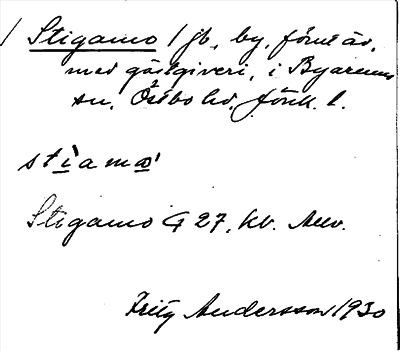 Stigamo 1 jb., by, förut äv.
med gästgiveri, i Byarums
sn, Östbo hd, Jönk. l.
stiamo
Stigamo G 27, kv.
Fritz Andersson 1930